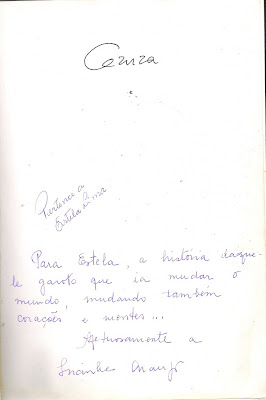 Cazuza
Pertence a
Estela Lima
Para Estela, a história daque-
le garoto que ia mudar o
mundo, mudando também
corações e mentes...
Afetuosamente a
Lucinha Araujo